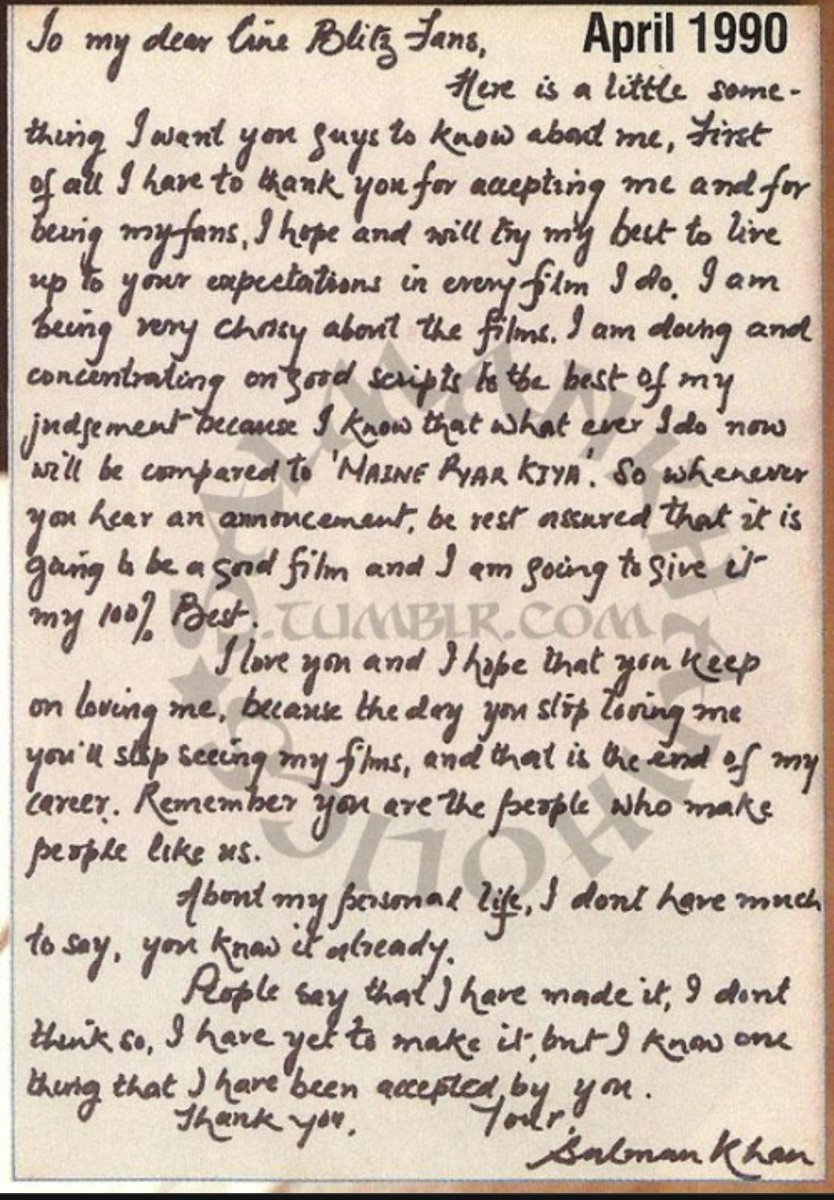 April 1990
To my dear Cine Blitz Fans,
Here is a little some-
thing I want you guys to know about me, First
of all I have to thank you for accepting me and for
being my fans, I hope and will try my best to live
up to your expectations in every film I do. I am
being very choosy about the films. I am doing and
concentrating on good scripts to the best of my
judgement because I know that what ever I do now
will be compared to 'MAINE PYAR KIYA'. So whenever
you hear an annoucement, be rest assured that it is
going to be a good film and I am going to give it
my 100% Best.
I love you and I hope that you keep
on loving me, because the day you stop loving me
you'll stop seeing my films, and that is the end of my
career. Remember you are the people who make
people like us.
About my personal life, I dont have much
to say, you know it already.
People say that I have made it, I dont
think so, I have yet to make it, but I know one
thing that I have been accepted by you.
Thank you. Your,
Salman Khan
.TUMBLR.COM